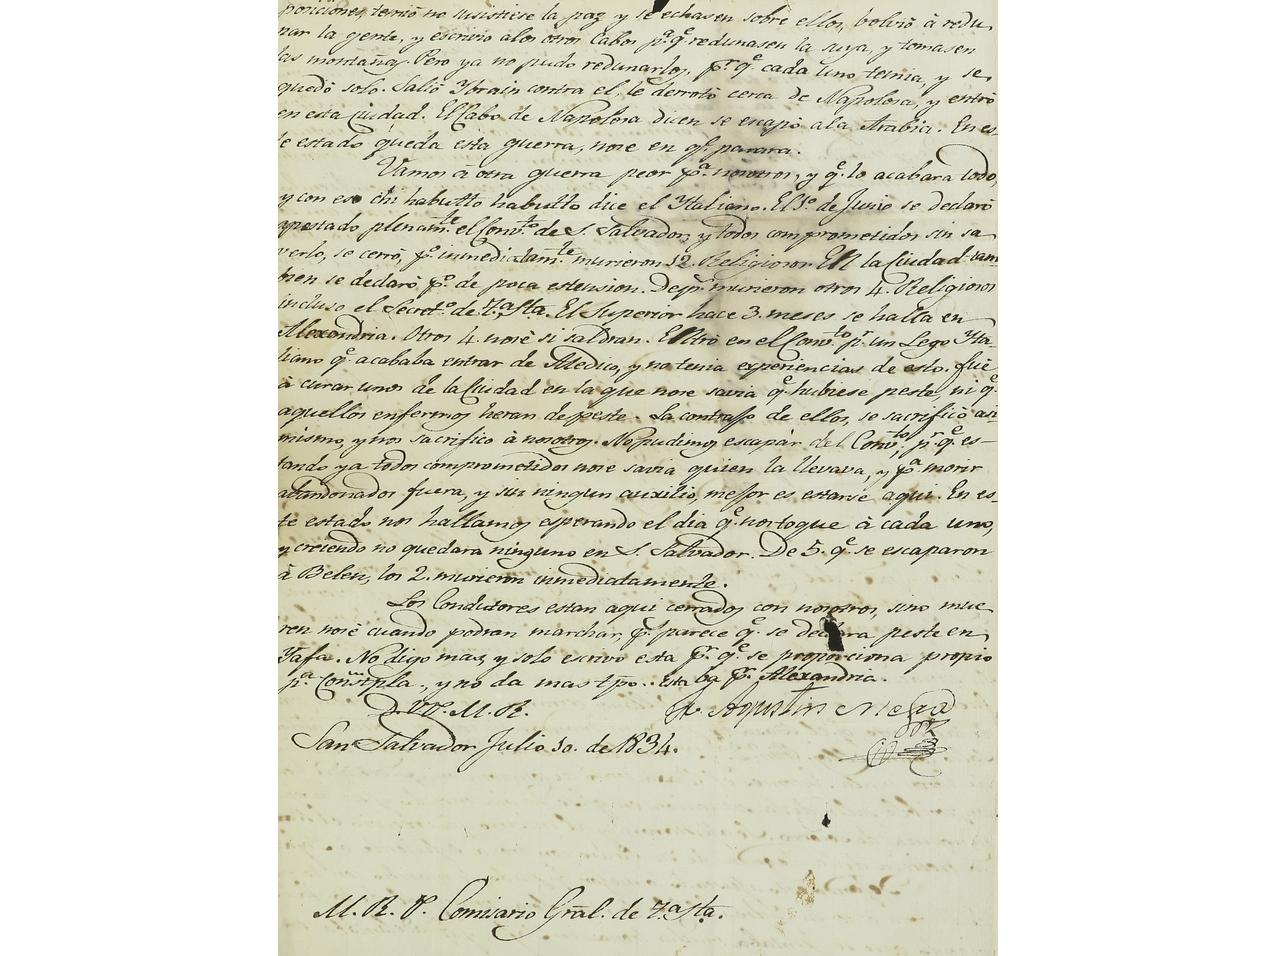 posiciones, temió no subsistiese la paz y se echasen sobre ellos, bolvió à redu-
nar la gente, y escrivio alos otros Cabos p.ª q.ᵉ redunasen la suya, y tomasen
las montañas. Pero ya no pudo redunarlos, p.ʳ q.ᵉ cada uno temia, y se
quedó solo. Salió Ybrain contra el, le derrotó cerca de Napolosa, y entró
en esta ciudad. El Cabo de Napolosa dicen se escapó ala Arabia. En es-
te estado queda esta guerra, nose en q.ᵉ parara.
Vamos à otra guerra peor p.ª nosotros, y q.ᵉ lo acabara todo,
y con eso chi habutto habutto dice el Ytaliano. El 5.º de Junio se declaró
apestado plenam.te el Conv.to de S. Salvador, y todos comprometidos sin sa-
verlo, se cerró, p.º inmediatam.te murieron 12. Religiosos. En la Ciudad tam-
bien se declaró p.º de poca estension. Desp.s murieron otros 4. Religiosos
incluso el Secret.º de T.ª Sta. El Superior hace 3. meses se halla en
Alexandria. Otros 4. nosè si saldran. Entró en el Conv.to p.r un Lego Yta-
liano q.ᵉ acababa entrar de Medico, y no tenia experiencias de esto. fue
à curar unos de la Ciudad en la que nose savia q.ᵉ hubiese peste, ni q.ᵉ
aquellos enfermos heran de peste. La contrajo de ellos, se sacrificó asi
mismo, y nos sacrificò à nosotros. No pudimos escapar del Conv.to, p.r q.ᵉ es-
tando ya todos comprometidos nose savia quien la llevava, y p.ª morir
abandonados fuera, y sin ningun auxilio, mejor es estarse aqui. En es-
te estado nos hallamos esperando el dia q.ᵉ nos toque à cada uno,
y creiendo no quedara ninguno en S. Salvador. De 5. q.ᵉ se escaparon
à Belen, los 2. murieron inmediatamente.
Los Conductores estan aqui cerrados con nosotros, sino mue-
ren nosè cuando podran marchar, p.s parece q.ᵉ se declara peste en
Yafa. No digo mas, y solo escrivo esta p.r q.ᵉ se proporciona propio
p.ª Constpla., y no da mas tpo. Esta ba p.r Alexandria.
D. VP. M. R.
Fr. Agustin
San Salvador Julio 10. de 1834.
M. R. P. Comisario Gral. de T.ª Sta.